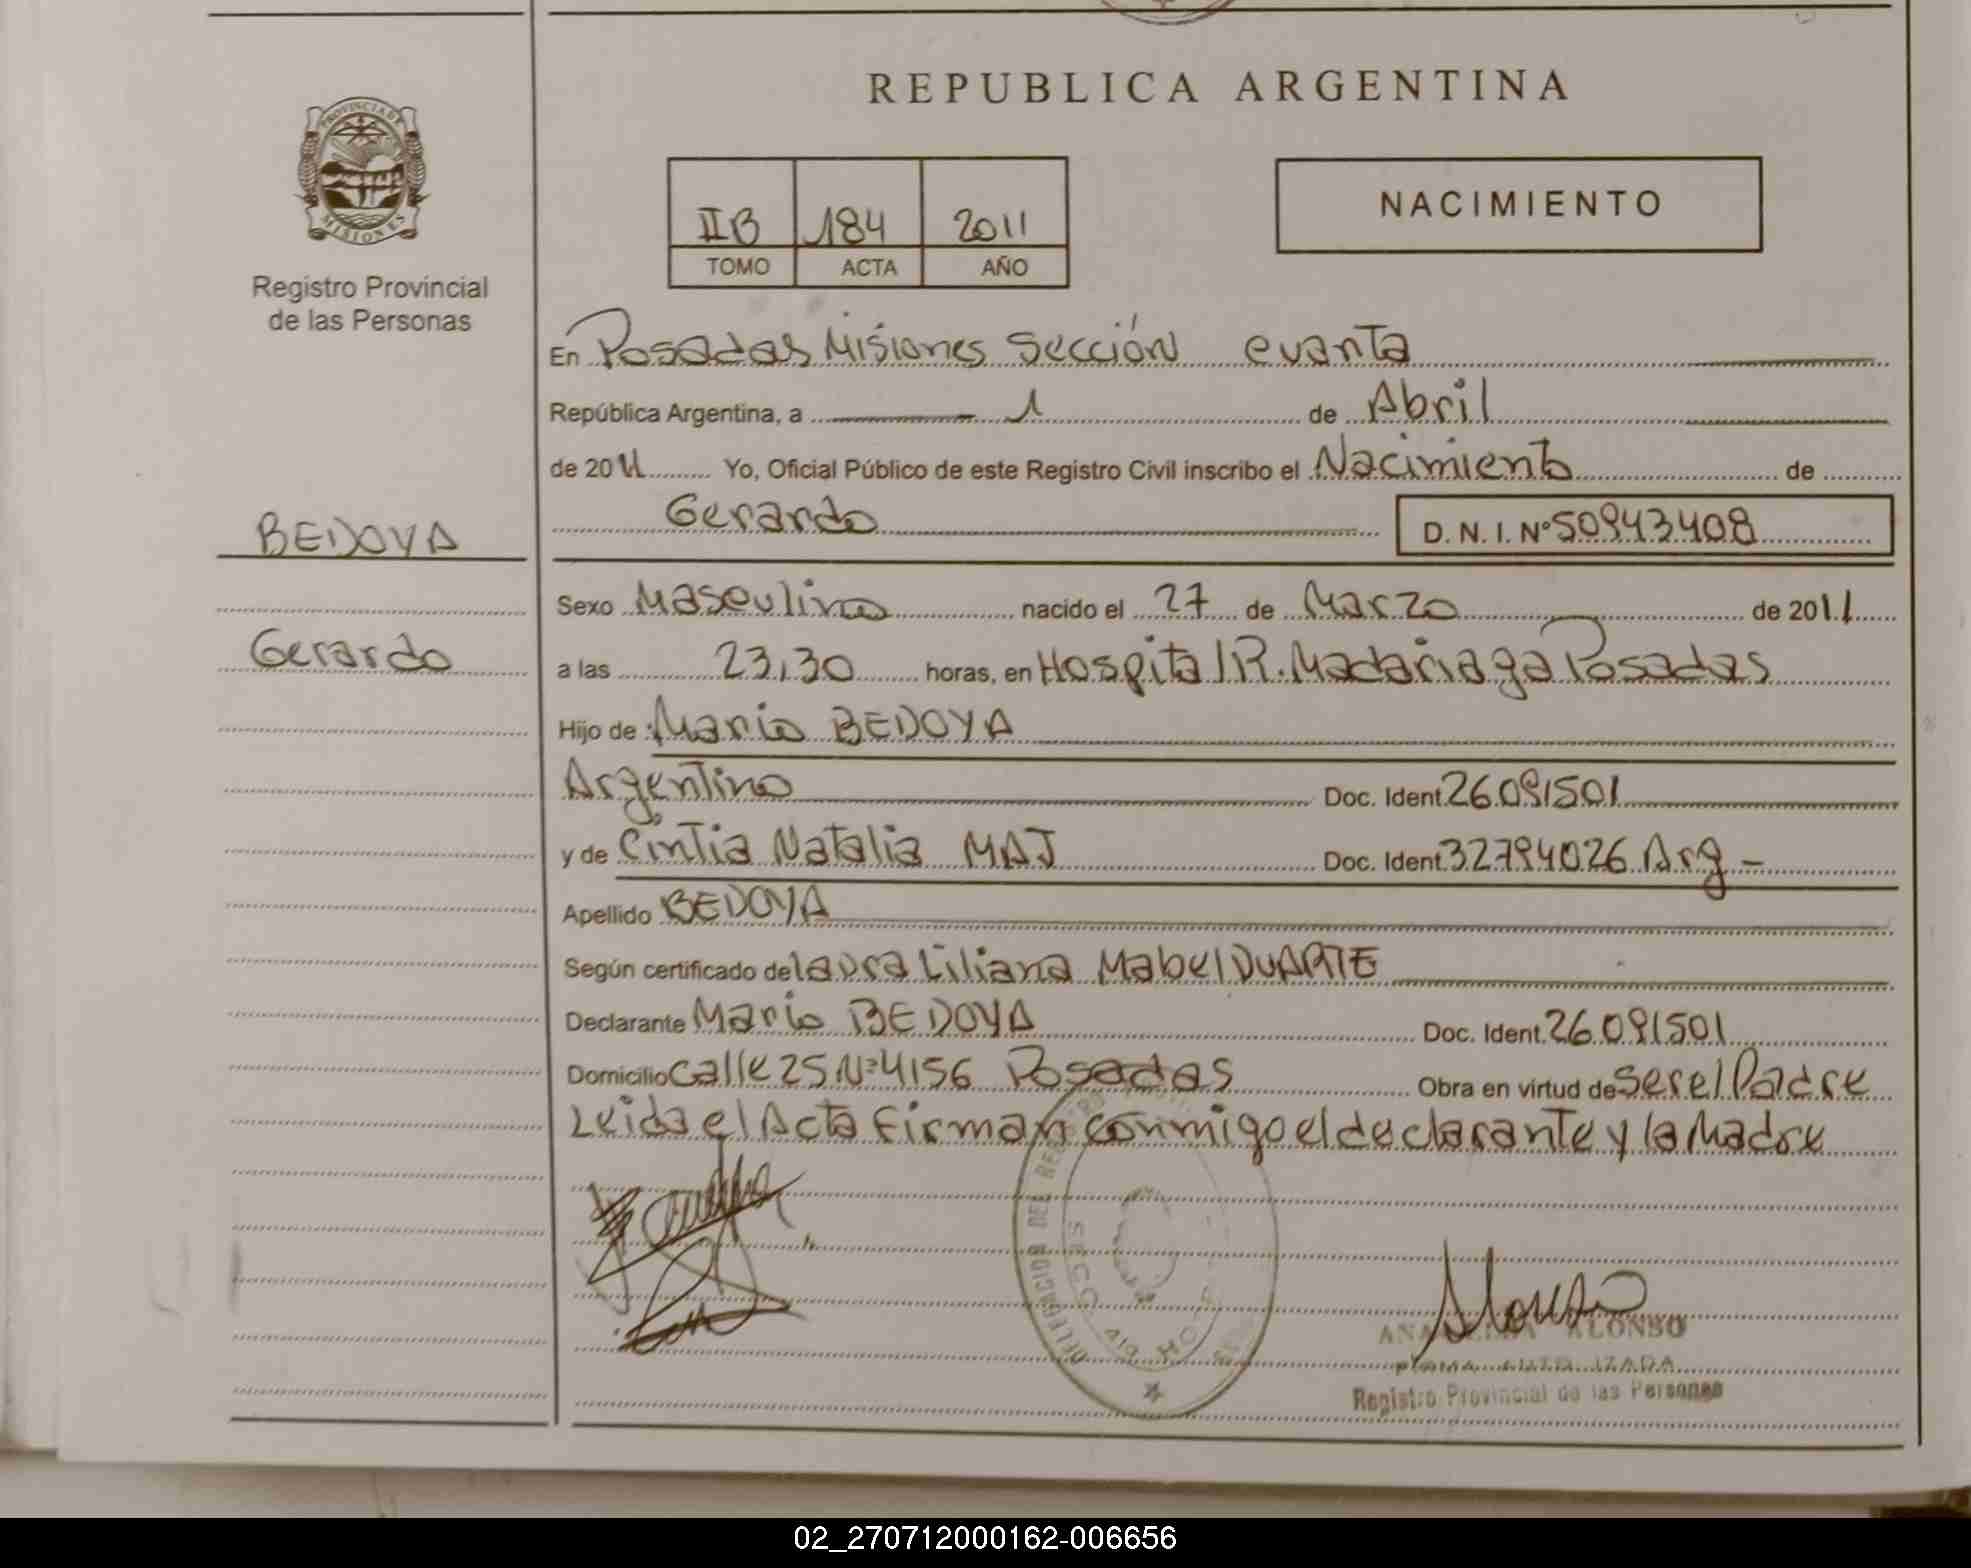 REPUBLICA ARGENTINA
PROVINCIA DE MISIONES
Registro Provincial
de las Personas
IIB 184 2011
TOMO ACTA AÑO
NACIMIENTO
En Posadas Misiones Sección cuarta
República Argentina, a 1 de Abril
de 2011 Yo, Oficial Público de este Registro Civil inscribo el Nacimiento de
Gerardo D. N. I. Nº 50943408
BEDOYA
Sexo Masculino nacido el 27 de Marzo de 2011
Gerardo
a las 23,30 horas, en Hospital R. Madariaga Posadas
Hijo de : Mario BEDOYA
Argentino Doc. Ident. 26.091501
y de Cintia Natalia MAJ Doc. Ident. 32794026 Arg -
Apellido BEDOYA
Según certificado de Laura Liliana Mabel DUARTE
Declarante Mario BEDOYA Doc. Ident. 26.091501
Domicilio Calle 25 Nº 4156 Posadas Obra en virtud de ser el Padre
Leida el Acta Firman conmigo el declarante y la Madre
DELEGACION DEL
ALONSO
Registro Provincial de las Personas
02_270712000162-006656